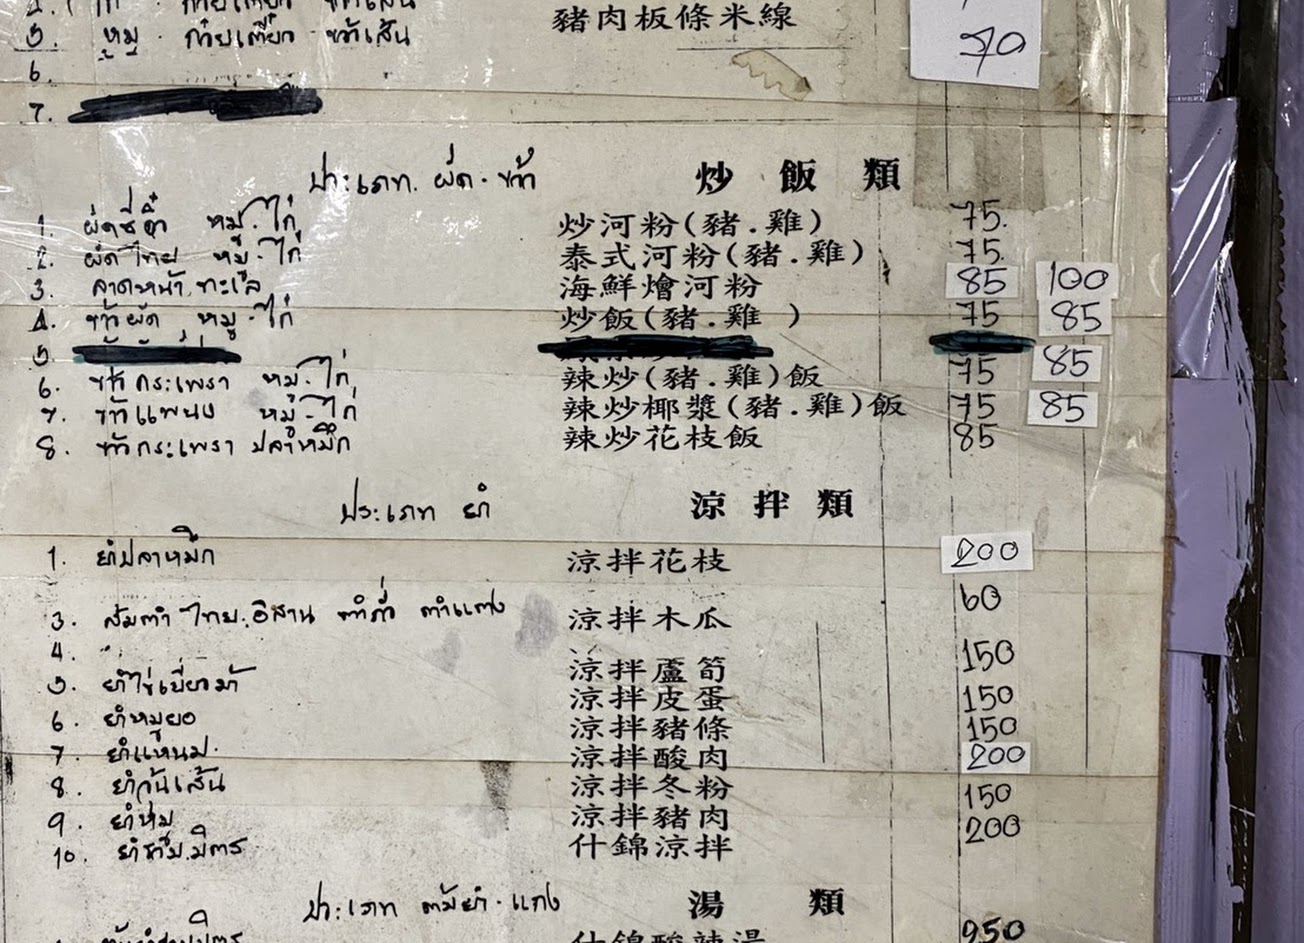 5. หมู ก๋วยเตี๋ยว ขาวเส้น 豬肉板條米線 70
6.
7.
ประเภท ผัด - ข้าว 炒飯類
1. ผัดซีอิ๊ว หมู - ไก่ 炒河粉(豬.雞) 75.
2. ผัดไทย หมู - ไก่ 泰式河粉(豬.雞) 75.
3. ลาดหน้า ทะเล 海鮮燴河粉 85 100
4. ข้าวผัด หมู - ไก่ 炒飯(豬.雞 ) 75 85
5
6. ข้าวกระเพรา หมู - ไก่ 辣炒(豬.雞)飯 75 85
7. ข้าวแพนง หมู - ไก่ 辣炒椰漿(豬.雞)飯 75 85
8. ข้าวกระเพรา ปลาหมึก 辣炒花枝飯 85
ประเภท ยำ 涼拌類
1. ยำปลาหมึก 涼拌花枝 200
3. ส้มตำ ไทย.อิสาน ตำถั่ว ตำแตง 涼拌木瓜 60
4. 涼拌蘆筍 150
5. ยำไข่เยี่ยวม้า 涼拌皮蛋 150
6. ยำหมูยอ 涼拌豬條 150
7. ยำแหนม. 涼拌酸肉 200
8. ยำวุ้นเส้น 涼拌冬粉 150
9. ยำหมู 涼拌豬肉 200
10. ยำรวมมิตร 什錦涼拌
ประเภท ต้มยำ - แกง 湯類
什錦酸辣湯 250